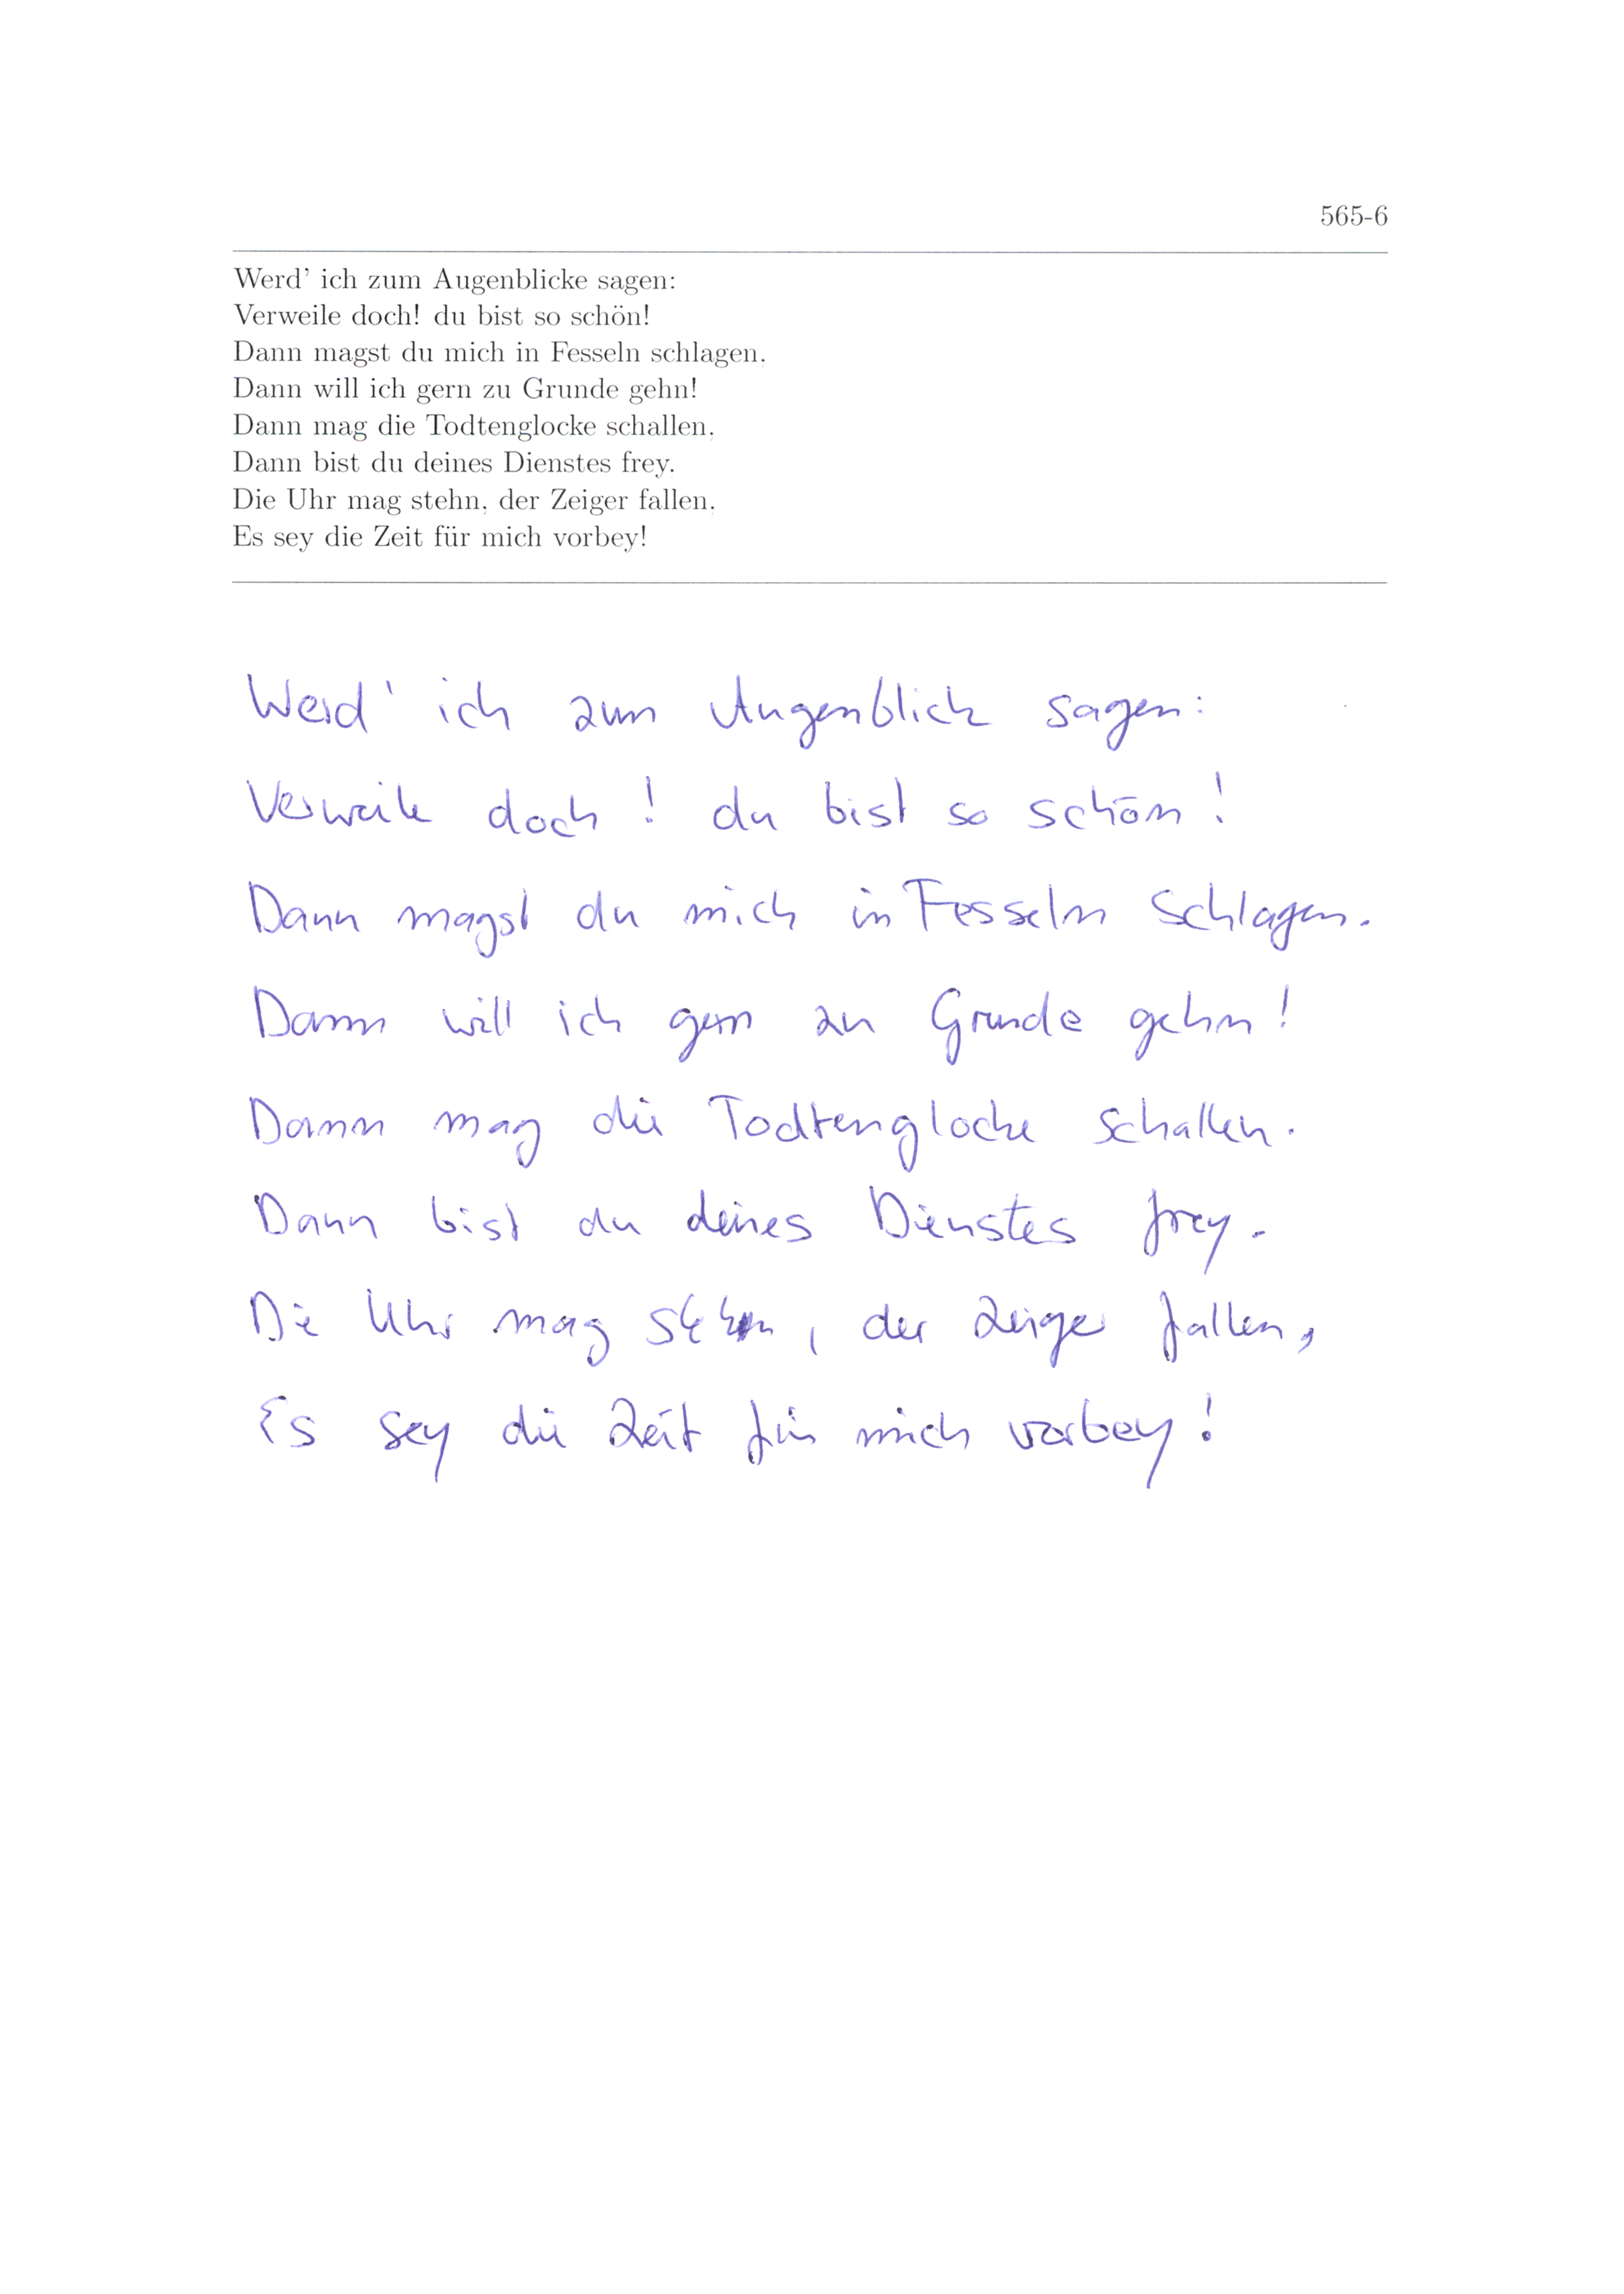 565-6
Werd' ich zum Augenblicke sagen:
Verweile doch! du bist so schön!
Dann magst du mich in Fesseln schlagen.
Dann will ich gern zu Grunde gehn!
Dann mag die Todtenglocke schallen.
Dann bist du deines Dienstes frey.
Die Uhr mag stehn, der Zeiger fallen.
Es sey die Zeit für mich vorbey!
Werd' ich zum Augenblick sagen:
Verweile doch! du bist so schön!
Dann magst du mich in Fesseln schlagen.
Dann will ich gern zu Grunde gehn!
Dann mag die Todtenglocke schallen.
Dann bist du deines Dienstes frey.
Die Uhr mag stehn, der Zeiger fallen,
Es sey die Zeit für mich vorbey!